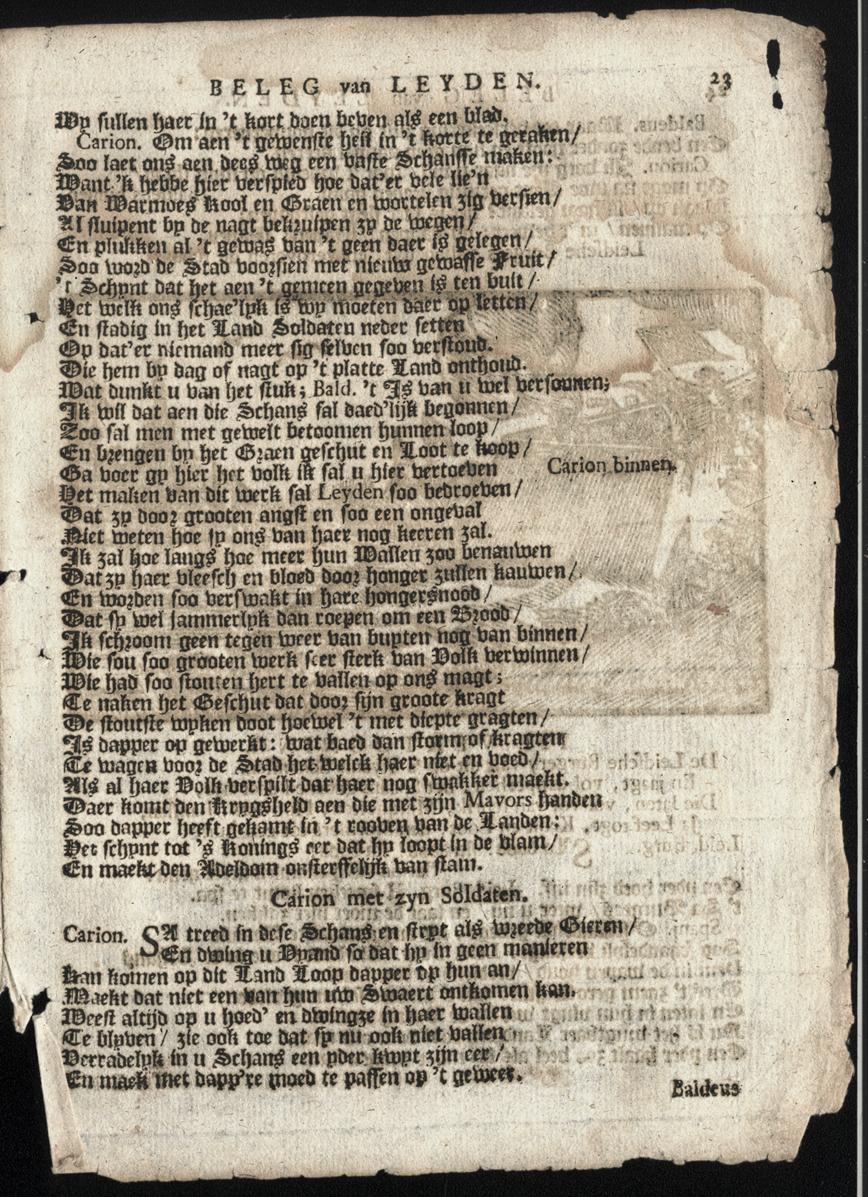 BELEG van LEYDEN. 23
Wy sullen haer in 't kort doen beven als een blad,
Carion. Om aen 't gewenste heil in 't korte te geraken/
Soo laet ons aen dees weg een vaste Schansse maken:
Want 'k hebbe hier verspied hoe dat'er vele lie'n
Van Warmoes Kool en Graen en wortelen zig versien/
Al sluipent by de nagt bekruipen zy de wegen/
En plukken al 't gewas van 't geen daer is gelegen/
Soo word de Stad voorsien met nieuw gewasse Fruit/
't Schynt dat het aen 't gemeen gegeven is ten buit/
Het welk ons schae'lyk is wy moeten daer op letten/
En stadig in het Land Soldaten neder setten
Op dat'er niemand meer sig selven soo verstoud.
Die hem by dag of nagt op 't platte Land onthoud.
Wat dunkt u van het stuk; Bald. 't Is van u wel versonnen;
Ik wil dat aen die Schans sal daed'lijk begonnen/
Zoo sal men met gewelt betoomen hunnen loop/
En brengen by het Graen geschut en Loot te koop/
Ga voer gy hier het volk ik sal u hier vertoeven Carion binnen.
Het maken van dit werk sal Leyden soo bedroeven/
Dat zy door grooten angst en soo een ongeval
Niet weten hoe sy ons van haer nog keeren zal.
Ik zal hoe langs hoe meer hun Wallen zoo benauwen
Dat zy haer vleesch en bloed door honger zullen kauwen/
En worden soo verswakt in hare hongersnood/
Dat sy wel jammerlyk dan roepen om een Brood/
Ik schroom geen tegen weer van buyten nog van binnen/
Wie sou soo grooten werk seer sterk van Volk verwinnen/
Wie had soo stouten hert te vallen op ons magt;
Te naken het Geschut dat door sijn groote kragt
De stoutste wyken doot hoewel 't met diepte gragten/
Is dapper op gewerkt: wat baed dan storm of kragten
Te wagen voor de Stad het welck haer niet en voed/
Als al haer Volk verspilt dat haer nog swakker maekt.
Daer komt den Krygsheld aen die met zijn Mavors handen
Soo dapper heeft gekamt in 't rooven van de Landen:
Het schynt tot 's Konings eer dat hy loopt in de vlam/
En maekt den Adeldom onsterffelijk van stam.
Carion met zyn Soldaten.
Carion. SA treed in dese Schans en strpt als wreede Gieren/
En dwing u Vyand so dat hy in geen manieren
Kan komen op dit Land Loop dapper op hun an/
Maekt dat niet een van hun uw Swaert ontkomen kan.
Weest altijd op u hoed' en dwingze in haer wallen
Te blyven/ zie ook toe dat sy nu ook niet vallen
Verradelyk in u Schans een yder kwyt zijn eer/
En maek met dapp're moed te passen op 't geweer.
Baldeus